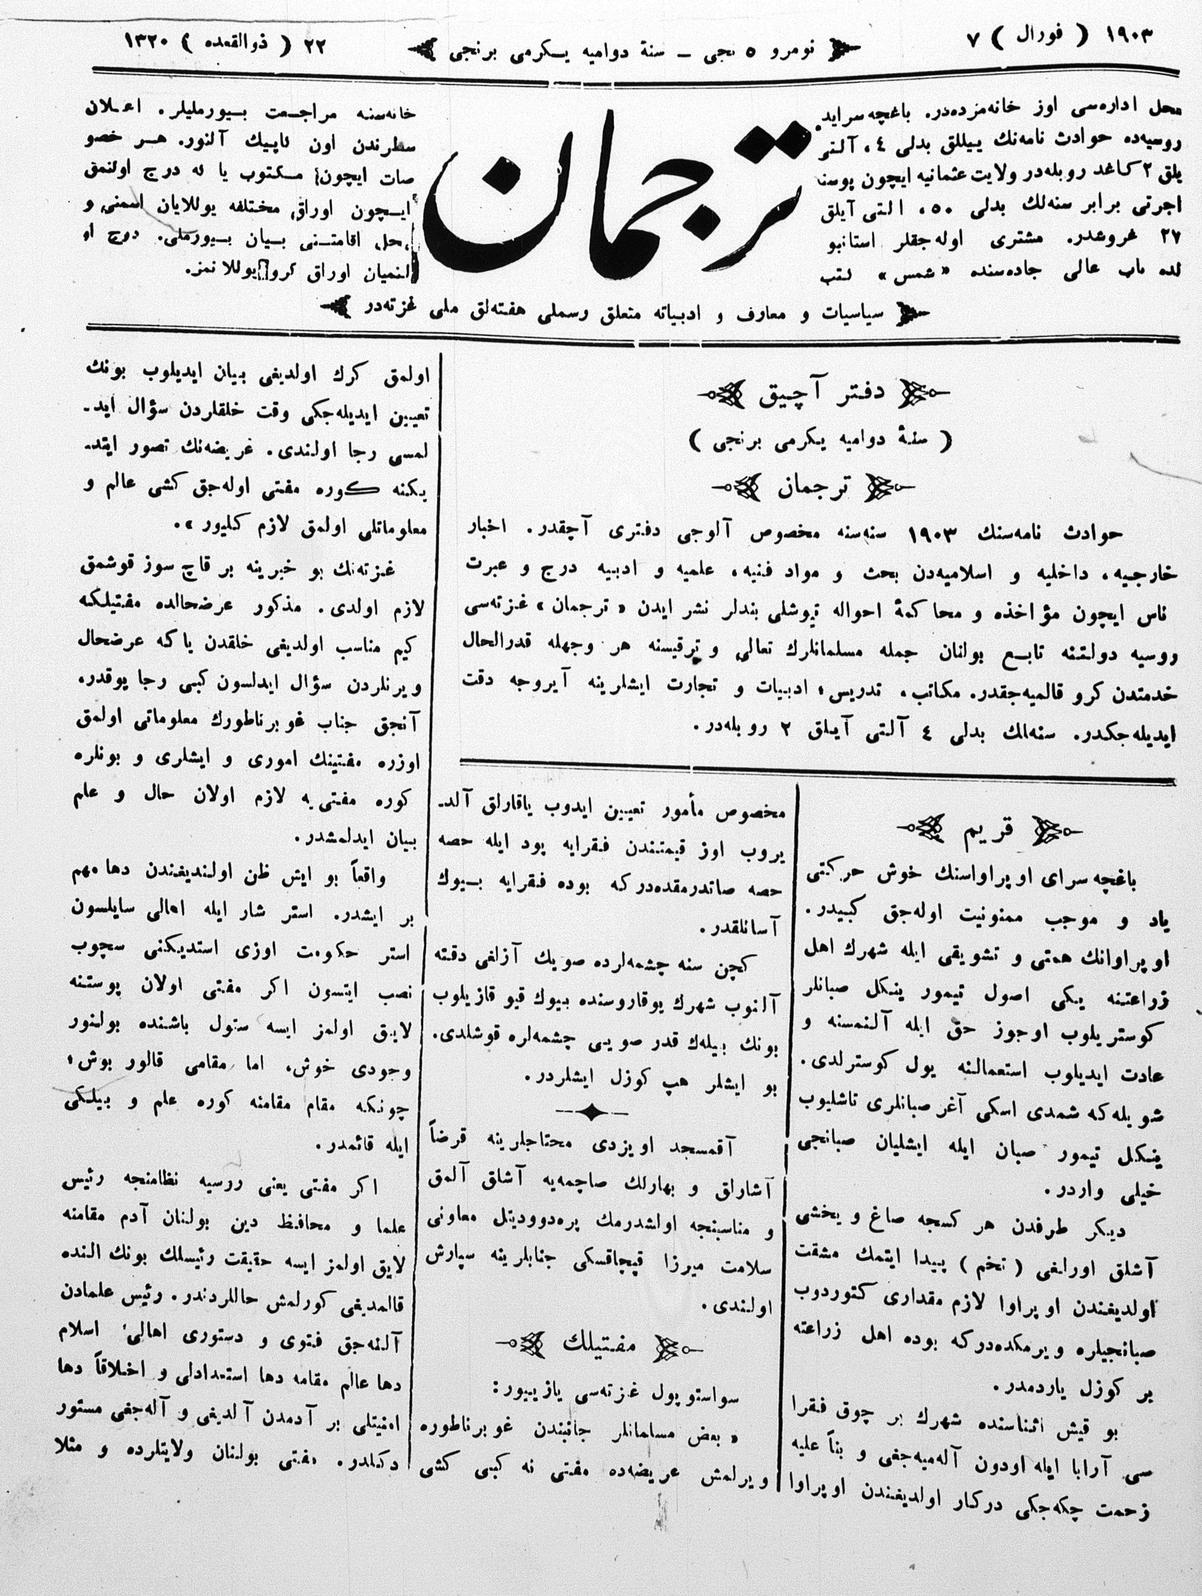 ١٩٠٣ ( فورال ) ٧
نومرو ٥ نجی ــ سنهٔ دوامیه یـکرمی برنجی
٢٢ ( ذوالقعده ) ١٣٢٠
محل اداره‌سی اوز خانه‌مزده‌در. باغچه سرایده.
روسیه‌ده حوادث نامه‌نك ییللق بدلی ٤، آلتی
یلق ٢ کاغد روبله‌در ولایت عثمانیه ایچون پوسته
اجرتی برابر سنه‌لك بدلی ٥٠، التی آیلق
٢٧ غروشدر. مشتری اوله‌جقلر استانبو
لده باب عالی جاده‌سنده «شمس» کتب
ترجمان
خانه‌سنه مراجـعت بـیورملیلر. اعـلان
سطرندن اون کاپیك آلنور. هـر خصو
صات ایچون مـکتوب یا که درج اولنمق
ایـچون اوراق مختلفه یوللایان اسمنی و
محل اقامتـنی بـیان بـیورملی. درج او
لنمیان اوراق کرو یوللانمز.
سیاسیات و معارف و ادبیاته متعلق رسملی هفته‌لق ملی غزته‌در
دفـتر آچـیق
( سنهٔ دوامیه یـکرمی برنجی )
ترجمان
حوادث نامه‌سنك ١٩٠٣ سنه‌سنه مخصوص آلوجی دفتری آچقدر. اخبار
خارجیه، داخلیه و اسلامیه‌دن بحث و مواد فنیه، علمیه و ادبیه درج و عبرت
ناس ایچون مؤاخذه و محاکمهٔ احواله تیوشلی بندلر نشر ایدن «ترجمان» غزته‌سی
روسیه دولتنه تابـع بولنان جمله مسلمانلرك تعالی و ترقیسنه هر وجهله قدرالحال
خدمتدن کرو قالمیه‌جقدر. مکاتب، تدریس، ادبیات و تجارت ایشلرینه آیروجه دقت
ایدیله‌جکدر. سنه‌لك بدلی ٤ آلتی آیلق ٢ روبله‌در.
قریم
باغچه سرای اوپراواسنك خوش حرکتی
یاد و موجب ممنونیت اوله‌جق کبیدر.
اوپراوانك همتی و تشویقی ایله شهرك اهل
زراعتنه یـکی اصول تیمور یـنکل صبانلر
کوستریلوب اوجوز حق ایله آلنمسنه و
عادت ایدیلوب استعمالنه یول کوسترلدی.
شویله‌که شمدی اسکی آغر صبانلری تاشلیوب
یـنکل تیمور صبان ایله ایشلیان صبانجی
خیلی واردر.
دیـکر طرفدن هر کسجه صاغ و یخشی
آشلق اورلغی ( تخم ) پیدا ایتمك مشقت
اولدیغندن اوپراوا لازم مقداری کتوردوب
صبانجیلره ویرمکده‌درکه بوده اهل زراعته
بر کوزل یاردمدر.
بو قیش اثناسنده شهرك بر چوق فـقرا
سی آرابا ایله اودون آله‌میه‌جغی و بنأ علیه
زحمت چکه‌جکی درکار اولدیغندن اوپراوا
مخصوص مأمور تعیین ایدوب یاقارلق آلد.
یروب اوز قیمتندن فـقرایه پود ایله حصه
حصه صاتدرمقده‌درکه بوده فـقرایه بـیوك
آسانلقدر.
کچن سنه چشمه‌لرده صویك آزلغی دقته
آلنوب شهرك یوقاروسنده بیوك قیو قازیلوب
بونك بیله‌ك قدر صویی چشمه‌لره قوشلدی.
بو ایشلر هپ کوزل ایشلردر.
آقمسجد اویزدی محتاجلرینه قرضاً
آشارلق و بهارلك صاچمه‌یه آشلق آلمق
و مناسبنجه اولشدرمك پره‌دوودیتل معاونی
سلامت میرزا قیچاقسکی جنابلرینه سپارش
اولندی.
مفـتیلك
سواستوپول غزته‌سی یازییور:
« بعض مسلمانلر جانبندن غوبرناطوره
ویرلمش عریضه‌ده مفتی نه کبی کشی
اولمق کرك اولدیغی بیان ایدیلوب بونك
تعیین ایدیله‌جکی وقت خلقلردن سؤال اید.
لمسی رجا اولندی. عریضه‌نك تصور ایتد.
یکنه کوره مفتی اوله‌جق کشی عالم و
معلوماتلی اولمق لازم کلیور ».
غزته‌نك بو خبرینه بر قاچ سوز قوشمق
لازم اولدی. مذکور عرضحالده مفتیلکه
کیم مناسب اولدیغی خلقدن یاکه عرضحال
ویرنلردن سؤال ایدلسون کبی رجا یوقدر.
آنجق جناب غوبرناطورك معلوماتی اولمق
اوزره مفتینك اموری و ایشلری و بونلره
کوره مفتی‌یه لازم اولان حال و علم
بیان ایدلمشدر.
واقعاً بو ایش ظن اولندیغندن دها مهم
بر ایشدر. استر شار ایله اهالی سایلسون
استر حکومت اوزی استدیکنی سچوب
نصب ایتسون اکر مفتی اولان پوستنه
لایق اولمز ایسه ستول باشنده بولنور
وجودی خوش، اما مقامی قالور بوش؛
چونکه مقام مقامنه کوره علم و بیلکی
ایله قائمدر.
اکر مفتی یعنی روسیه نظامنجه رئیس
علما و محافظ دین بولنان آدم مقامنه
لایق اولمز ایسه حقیقت رئیسلك بونك النده
قالمدیغی کورلمش حاللردندر. رئیس علمادن
آلنه‌جق فـتوی و دستوری اهالیٔ اسلام
دها عالم مقامه دها استعدادلی و اخلاقاً دها
امنیتلی بر آدمدن آلدیغی و آله‌جغی مستور
دکلدر. مفتی بولنان ولایتلرده و مثلا